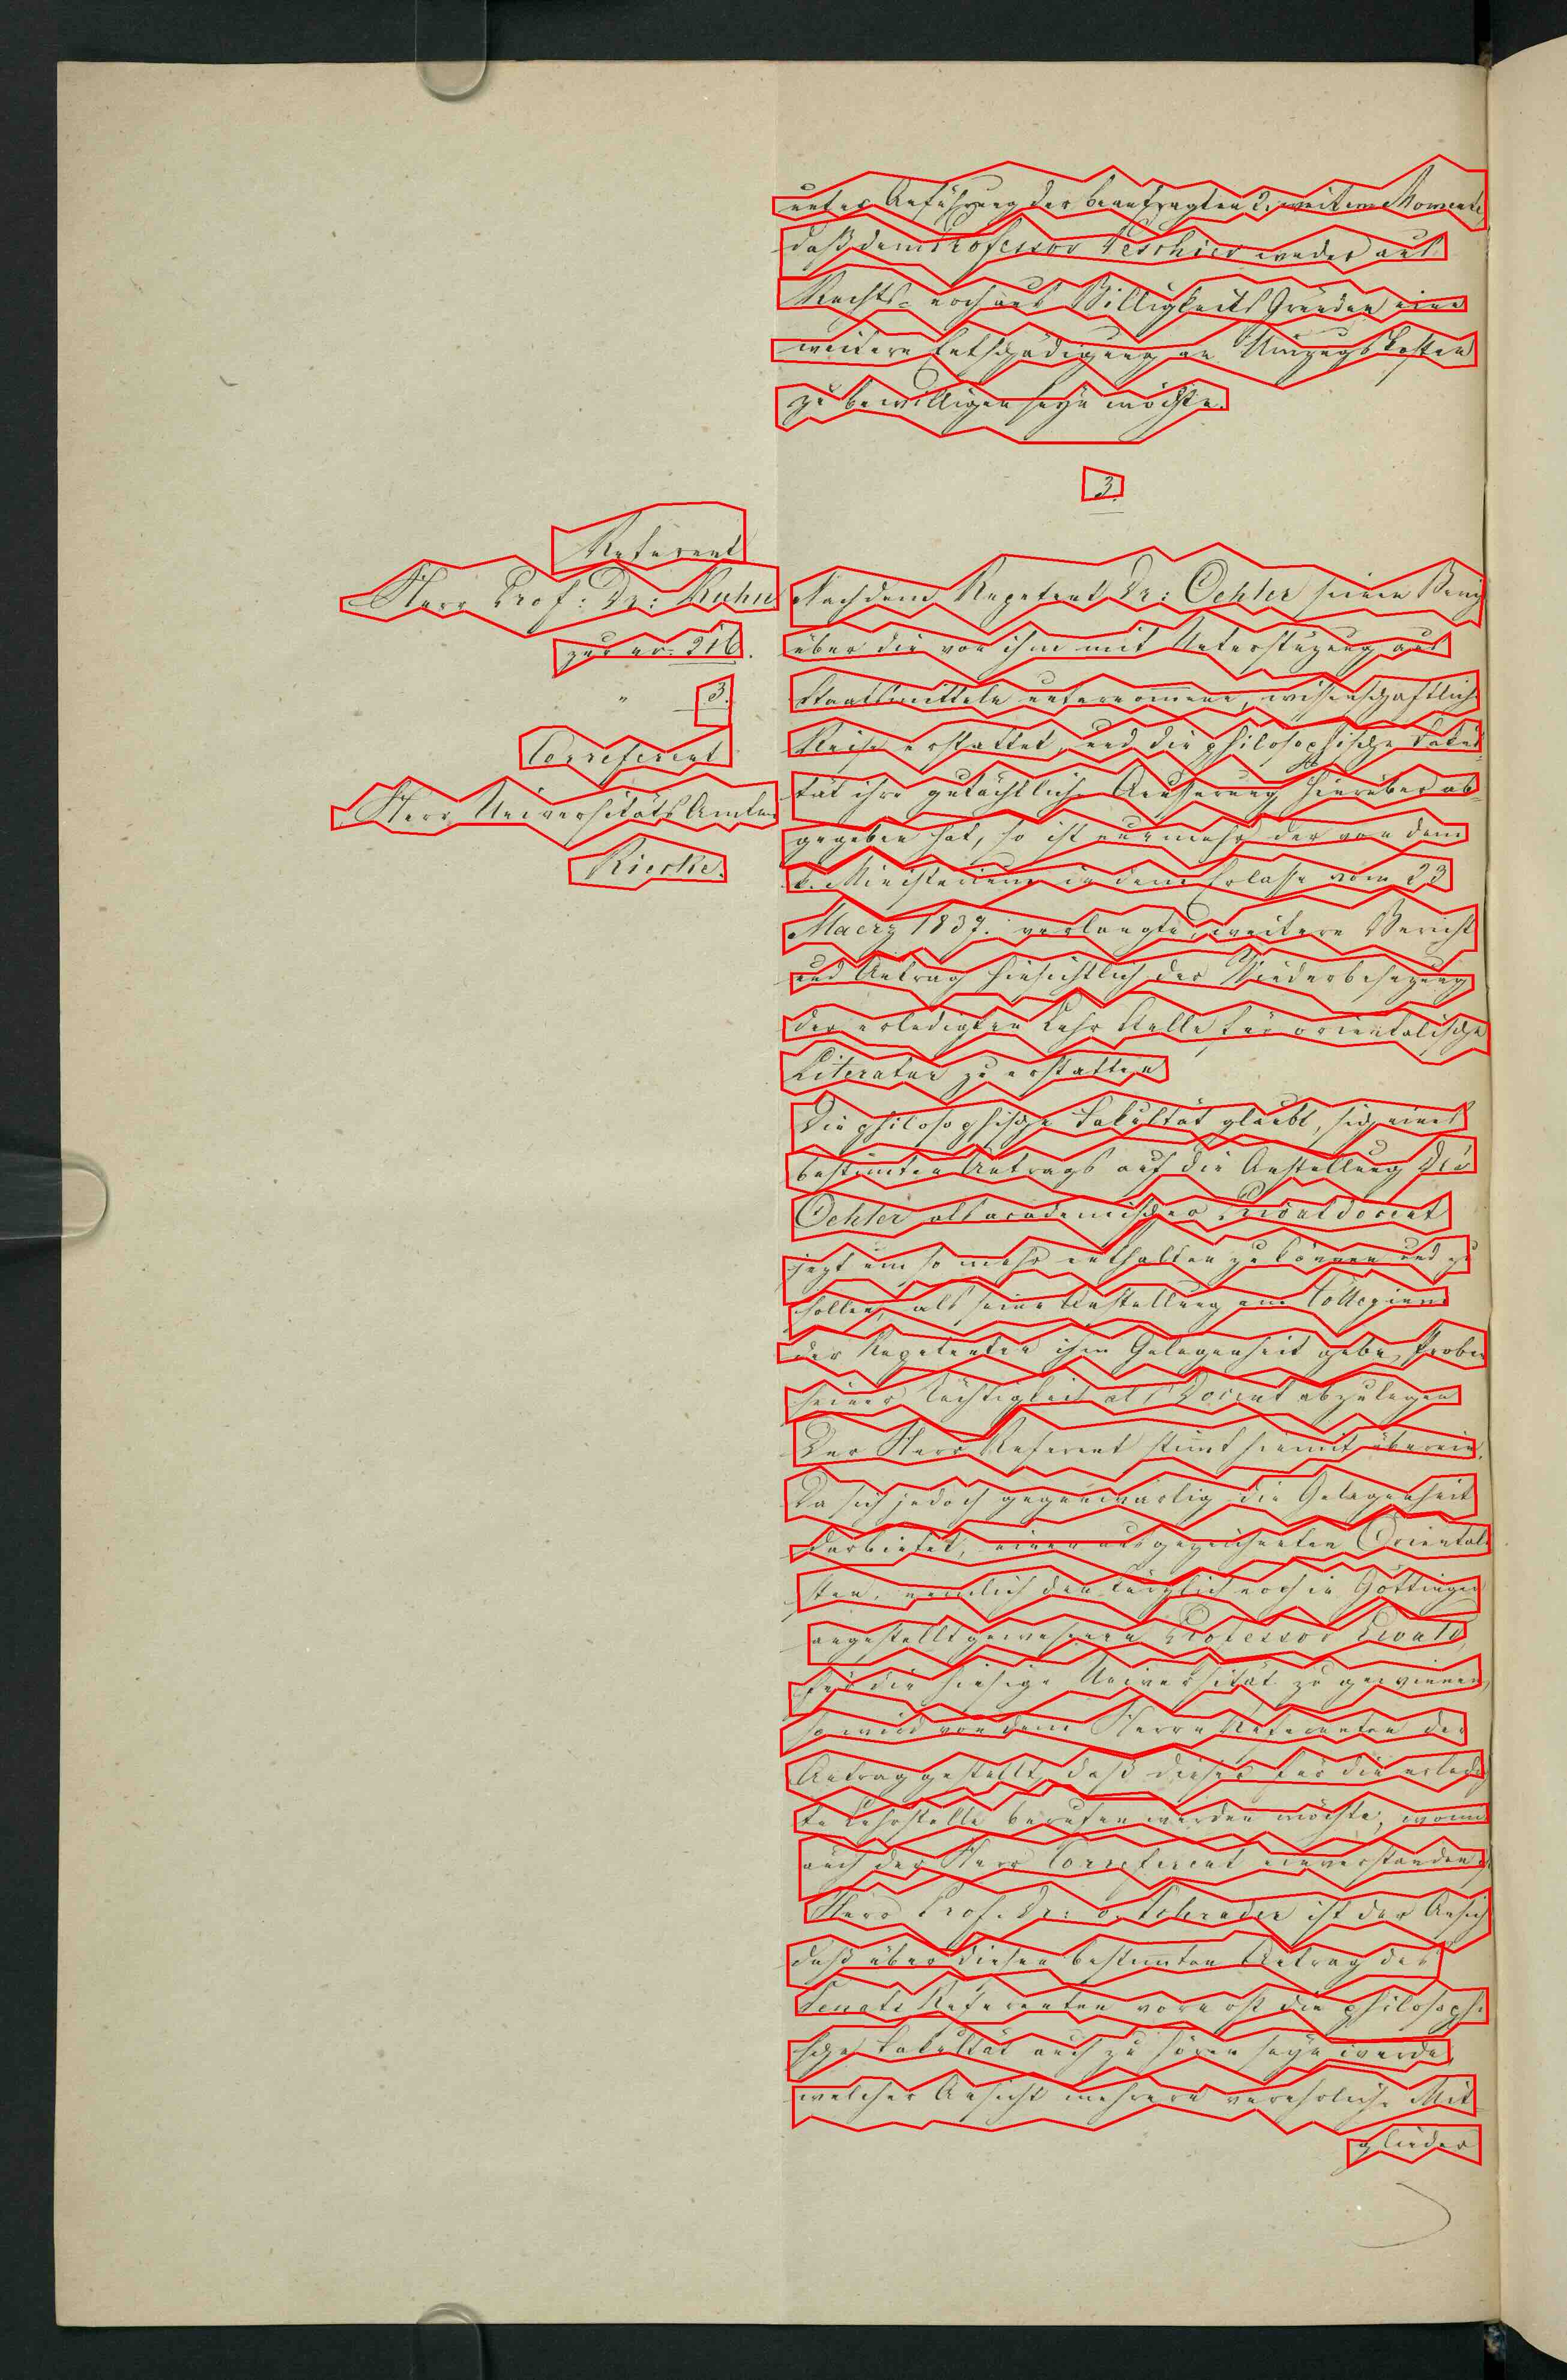 unter Anführung der beantragten 2. weitern Momente,
daß dem Professor Peschier weder aus
Rechts- noch aus Billigkeits Gründen eine
weitere Entschädigung an Umzugskosten
zu bewilligen seyn möchte.
3.
Referent
Herr Prof: Dr: Kuhn
zur nr. 216.
" 3.
Correferent
Herr Universitäts Amtm
Riecke.
Nachdem Repetent Dr: Oehler seinen Beric
über die von ihm mit Unterstüzung aus
Staatsmitteln unternommene, wissenschaftliche
Reise erstattet, und die philosophische Fakul-
tät ihre gutächtliche Aeusserung hierüber ab-
gegeben hat, so ist nunmehr der von dem
k. Ministerium in dem Erlasse vom 23
Maerz 1837. verlangte, weitere Bericht
und Antrag hinsichtlich der Wiederbesezung
der erledigten Lehr Stelle für orientalische
Literatur zu erstatten
Die philosophische Fakultät glaubt, sich eines
bestimten Antrags auf die Anstellung des
Oehler als academischer Privatdocent
jezt um so mehr enthalten zu können und zu
sollen, als seine Anstellung am Collegium
der Repetenten ihm Gelegenheit gebe, Proben
seiner Tüchtigkeit als Docent abzulegen
Der Herr Referent stimt hiemit überein.
Da sich jedoch gegenwärtig die Gelegenheit
darbietet, einen ausgezeichneten Orientali
sten, nemlich den kürzlich noch in Göttingen
angestellt gewesenen Professor Ewald,
für die hiesige Universität zu gewinnen,
so wird von dem Herrn Referenten der
Antrag gestellt, daß dieser für die erledig
te Lehrstelle berufen werden möchte, womi
auch der Herr Correferent einverstanden ist
Herr Prof. Dr: v. Schrader ist der Ansich
daß über diesen bestimmten Antrag des
Senats Referenten vorerst die philosophi
sche Fakultät auch zu hören seyn werde,
welcher Ansicht mehrere verehrliche Mit-
glieder